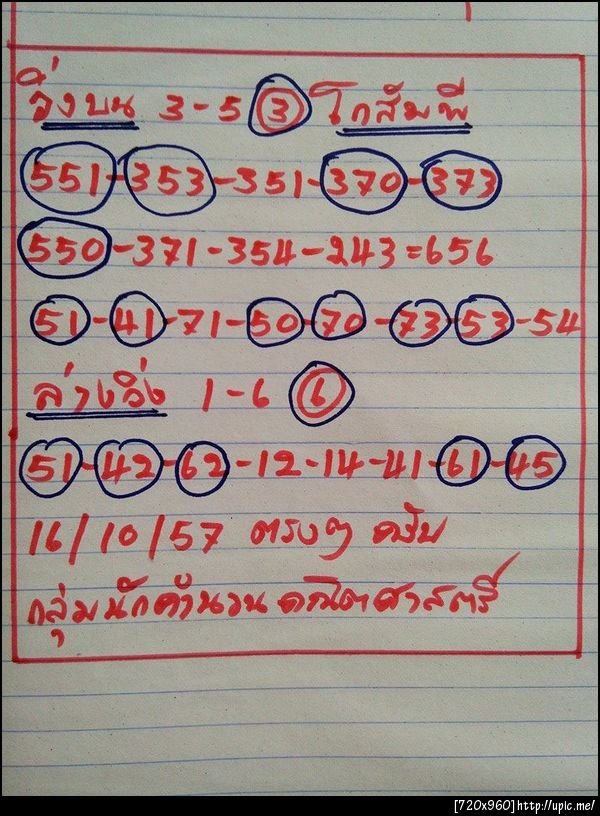 วิ่งบน 3-5 3 โกสัมพี
551-353-351-370-373
550-371-354-243=656
51-41-71-50-70-73-53-54
ล่างวิ่ง 1-6 6
51-42-62-12-14-41-61-45
16/10/57 ตรงๆ ครับ
กลุ่มนักคำนวนคณิตศาสตร์
[720x960]http://upic.me/